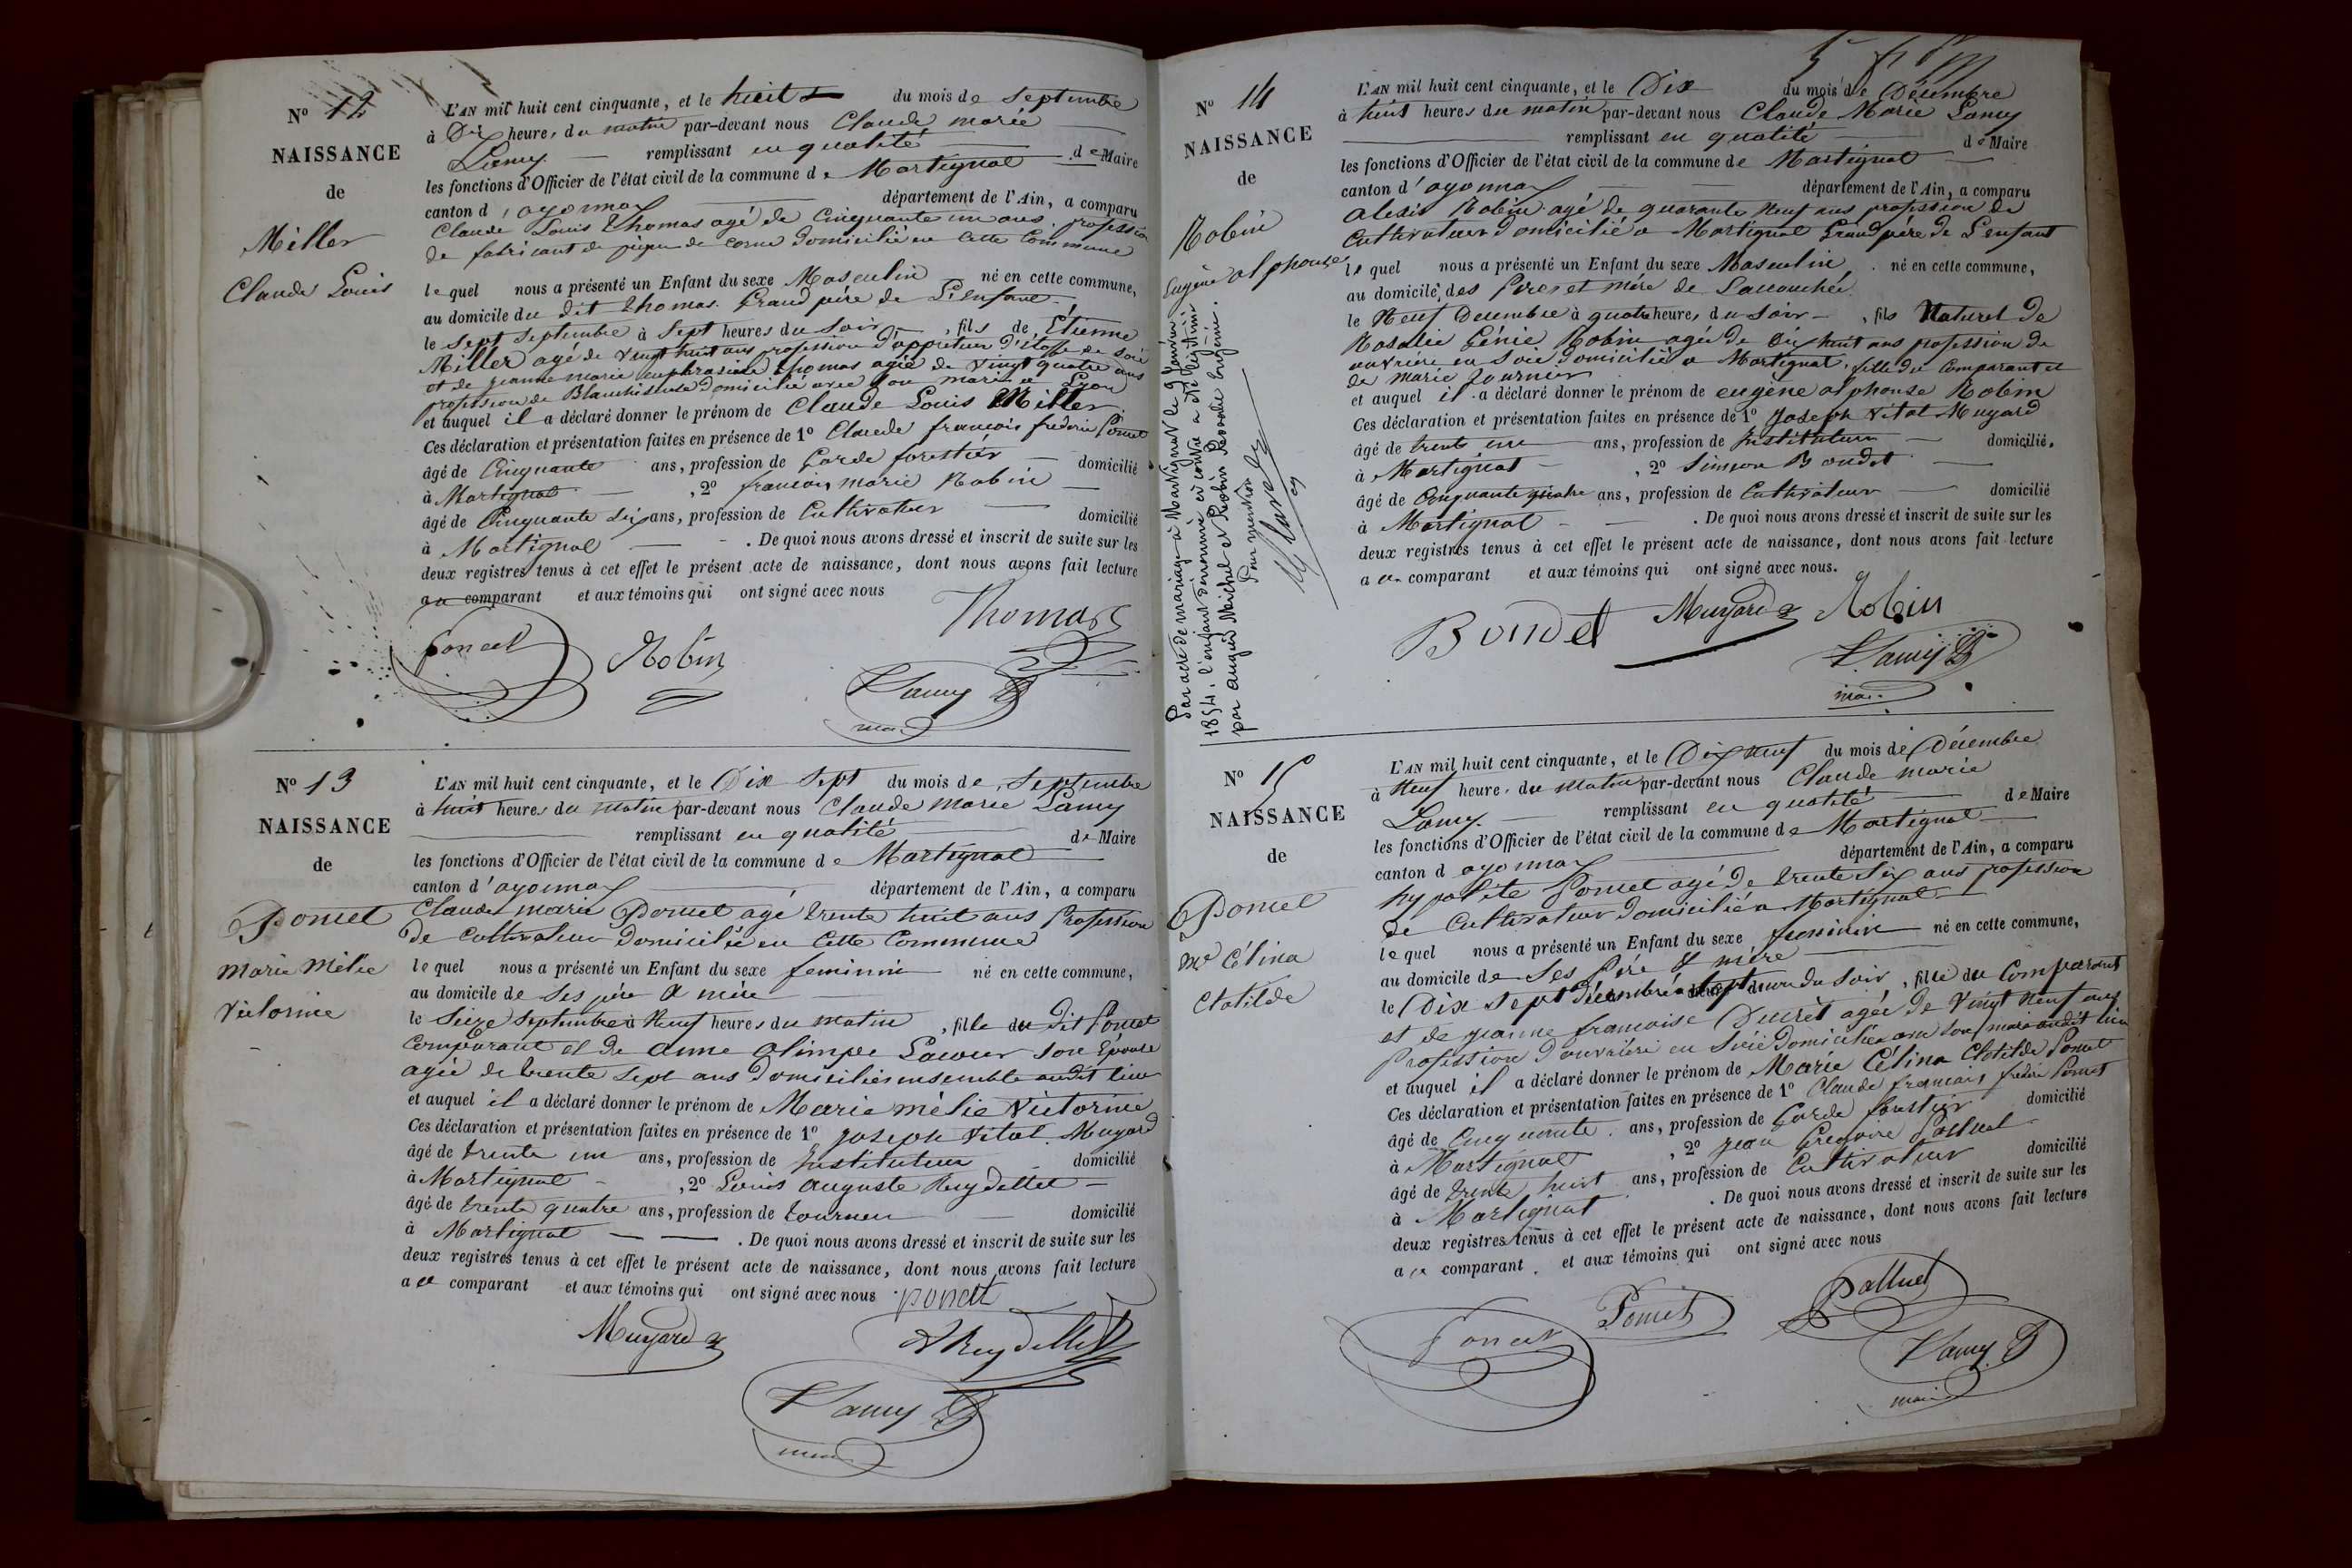 N.º 12
NAISSANCE
de
Miller
Claude Louis
L'AN mil huit cent cinquante, et le huit du mois de septembre
à Dix heures du matin par-devant nous Claude marie
Lamy remplissant en qualité de Maire
les fonctions d'Officier de l'état civil de la commune de Martignat
canton d'oyonnax département de l'Ain, a comparu
Claude Louis Thomas agé de Cinquante un ans profession
de fabricant de pignes de corne domicilié en Cette Commune
lequel nous a présenté un Enfant du sexe Masculin né en cette commune,
au domicile du dit thomas Grand père de L'enfant
le sept septembre à sept heures du soir, fils de Etienne
Miller agé de vingt huit ans profession d'appreteur d'étoffe de soie
et de jeanne marie euphrasine thomas agée de vingt quatre ans
profession de Blanchisseuse domicilié avec son mari a Lyon
et auquel il a déclaré donner le prénom de Claude Louis Miller
Ces déclaration et présentation faites en présence de 1º Claude francois frederic Poncet
âgé de Cinquante ans, profession de Garde forestier domicilié
à Martignat, 2º francois marie Robin
âgé de Cinquante six ans, profession de Cultivateur domicilié
à Martignat. De quoi nous avons dressé et inscrit de suite sur les
deux registres tenus à cet effet le présent acte de naissance, dont nous avons fait lecture
au comparant et aux témoins qui ont signé avec nous
Thomas
Poncet
Robin
Lamy
maire
N.º 13
NAISSANCE
de
Poncet
Marie Mélie
Victorine
L'AN mil huit cent cinquante, et le Dix sept du mois de Septembre
à huit heures du matin par-devant nous Claude Marie Lamy
remplissant en qualité de Maire
les fonctions d'Officier de l'état civil de la commune de Martignat
canton d'oyonnax département de l'Ain, a comparu
Claude marie Poncet agé trente huit ans Profession
de Cultivateur domicilié en Cette Commune
lequel nous a présenté un Enfant du sexe feminin né en cette commune,
au domicile de ses père & mère
le Seize Septembre à Neuf heures du matin, fille du dit Poncet
Comparant et de anne olimpe son Epouse
agée de trente sept ans domiciliés ensemble audit lieu
et auquel il a déclaré donner le prénom de Marie mélie Victorine
Ces déclaration et présentation faites en présence de 1º joseph Vital Muyard
âgé de trente un ans, profession de Instituteur domicilié
à Martignat, 2º Louis auguste Reydellet
âgé de trente quatre ans, profession de tourneur domicilié
à Martignat. De quoi nous avons dressé et inscrit de suite sur les
deux registres tenus à cet effet le présent acte de naissance, dont nous avons fait lecture
au comparant et aux témoins qui ont signé avec nous poncet
Muyard
Reydellet
Lamy
maire
N.º 14
NAISSANCE
de
Robin
Eugène alphonse
Par acte de mariage à Martignat le 9 Janvier
1854, l'enfant dénommé ci contre a été légitimé
par augier Michel et Robin Rosalie Eugénie.
Pour mention
L'AN mil huit cent cinquante, et le Dix du mois de Décembre
à huit heures du matin par-devant nous Claude Marie Lamy
remplissant en qualité de Maire
les fonctions d'Officier de l'état civil de la commune de Martignat
canton d'oyonnax département de l'Ain, a comparu
alexis Robin agé de quarante Neuf ans profession de
Cultivateur domicilié a Martignat Grand père de L'enfant
lequel nous a présenté un Enfant du sexe Masculin, né en cette commune,
au domicile des Père et mère de Laccouchée
le Neuf Decembre à quatre heures du soir, fils Naturel de
Rosalie Génie Robin agée de dix huit ans profession de
ouvrière en soie domicilié a Martignat, fille du Comparant et
de marie fournier
et auquel il a déclaré donner le prénom de eugène alphonse Robin
Ces déclaration et présentation faites en présence de 1º Joseph Vital Muyard
âgé de trente un ans, profession de Instituteur domicilié.
à Martignat, 2º Simeon Bondet
âgé de Cinquante quatre ans, profession de Cultivateur domicilié
à Martignat. De quoi nous avons dressé et inscrit de suite sur les
deux registres tenus à cet effet le présent acte de naissance, dont nous avons fait lecture
au comparant et aux témoins qui ont signé avec nous.
Bondet Muyard Robin
Lamy
maire
N.º 15
NAISSANCE
de
Poncet
Mie Célina
Clotilde
L'AN mil huit cent cinquante, et le Dix neuf du mois de Décembre
à Neuf heure du Matin par-devant nous Claude marie
Lamy remplissant en qualité de Maire
les fonctions d'Officier de l'état civil de la commune de Martignat
canton d oyonnax département de l'Ain, a comparu
hypolite Poncet agé de trente Six ans profession
de Cultivateur domicilié a Martignat
lequel nous a présenté un Enfant du sexe feminin né en cette commune,
au domicile de Ses Père & mère
le Dix sept Décembre à sept heure du soir, fille du Comparant
et de jeanne francoise Ducret agée de Vingt Neuf ans
Profession d'ouvrière en Soie domiciliée avec son mari audit lieu
et auquel il a déclaré donner le prénom de Marie Célina Clotilde Poncet
Ces déclaration et présentation faites en présence de 1º Claude francois frederic Poncet
âgé de Cinquante ans, profession de Garde forestier domicilié
à Martignat, 2º jean Gregoire Palluet
âgé de trente huit ans, profession de Cultivateur domicilié
à Martignat. De quoi nous avons dressé et inscrit de suite sur les
deux registres tenus à cet effet le présent acte de naissance, dont nous avons fait lecture
au comparant et aux témoins qui ont signé avec nous
Poncet Poncet Palluet
Lamy
maire